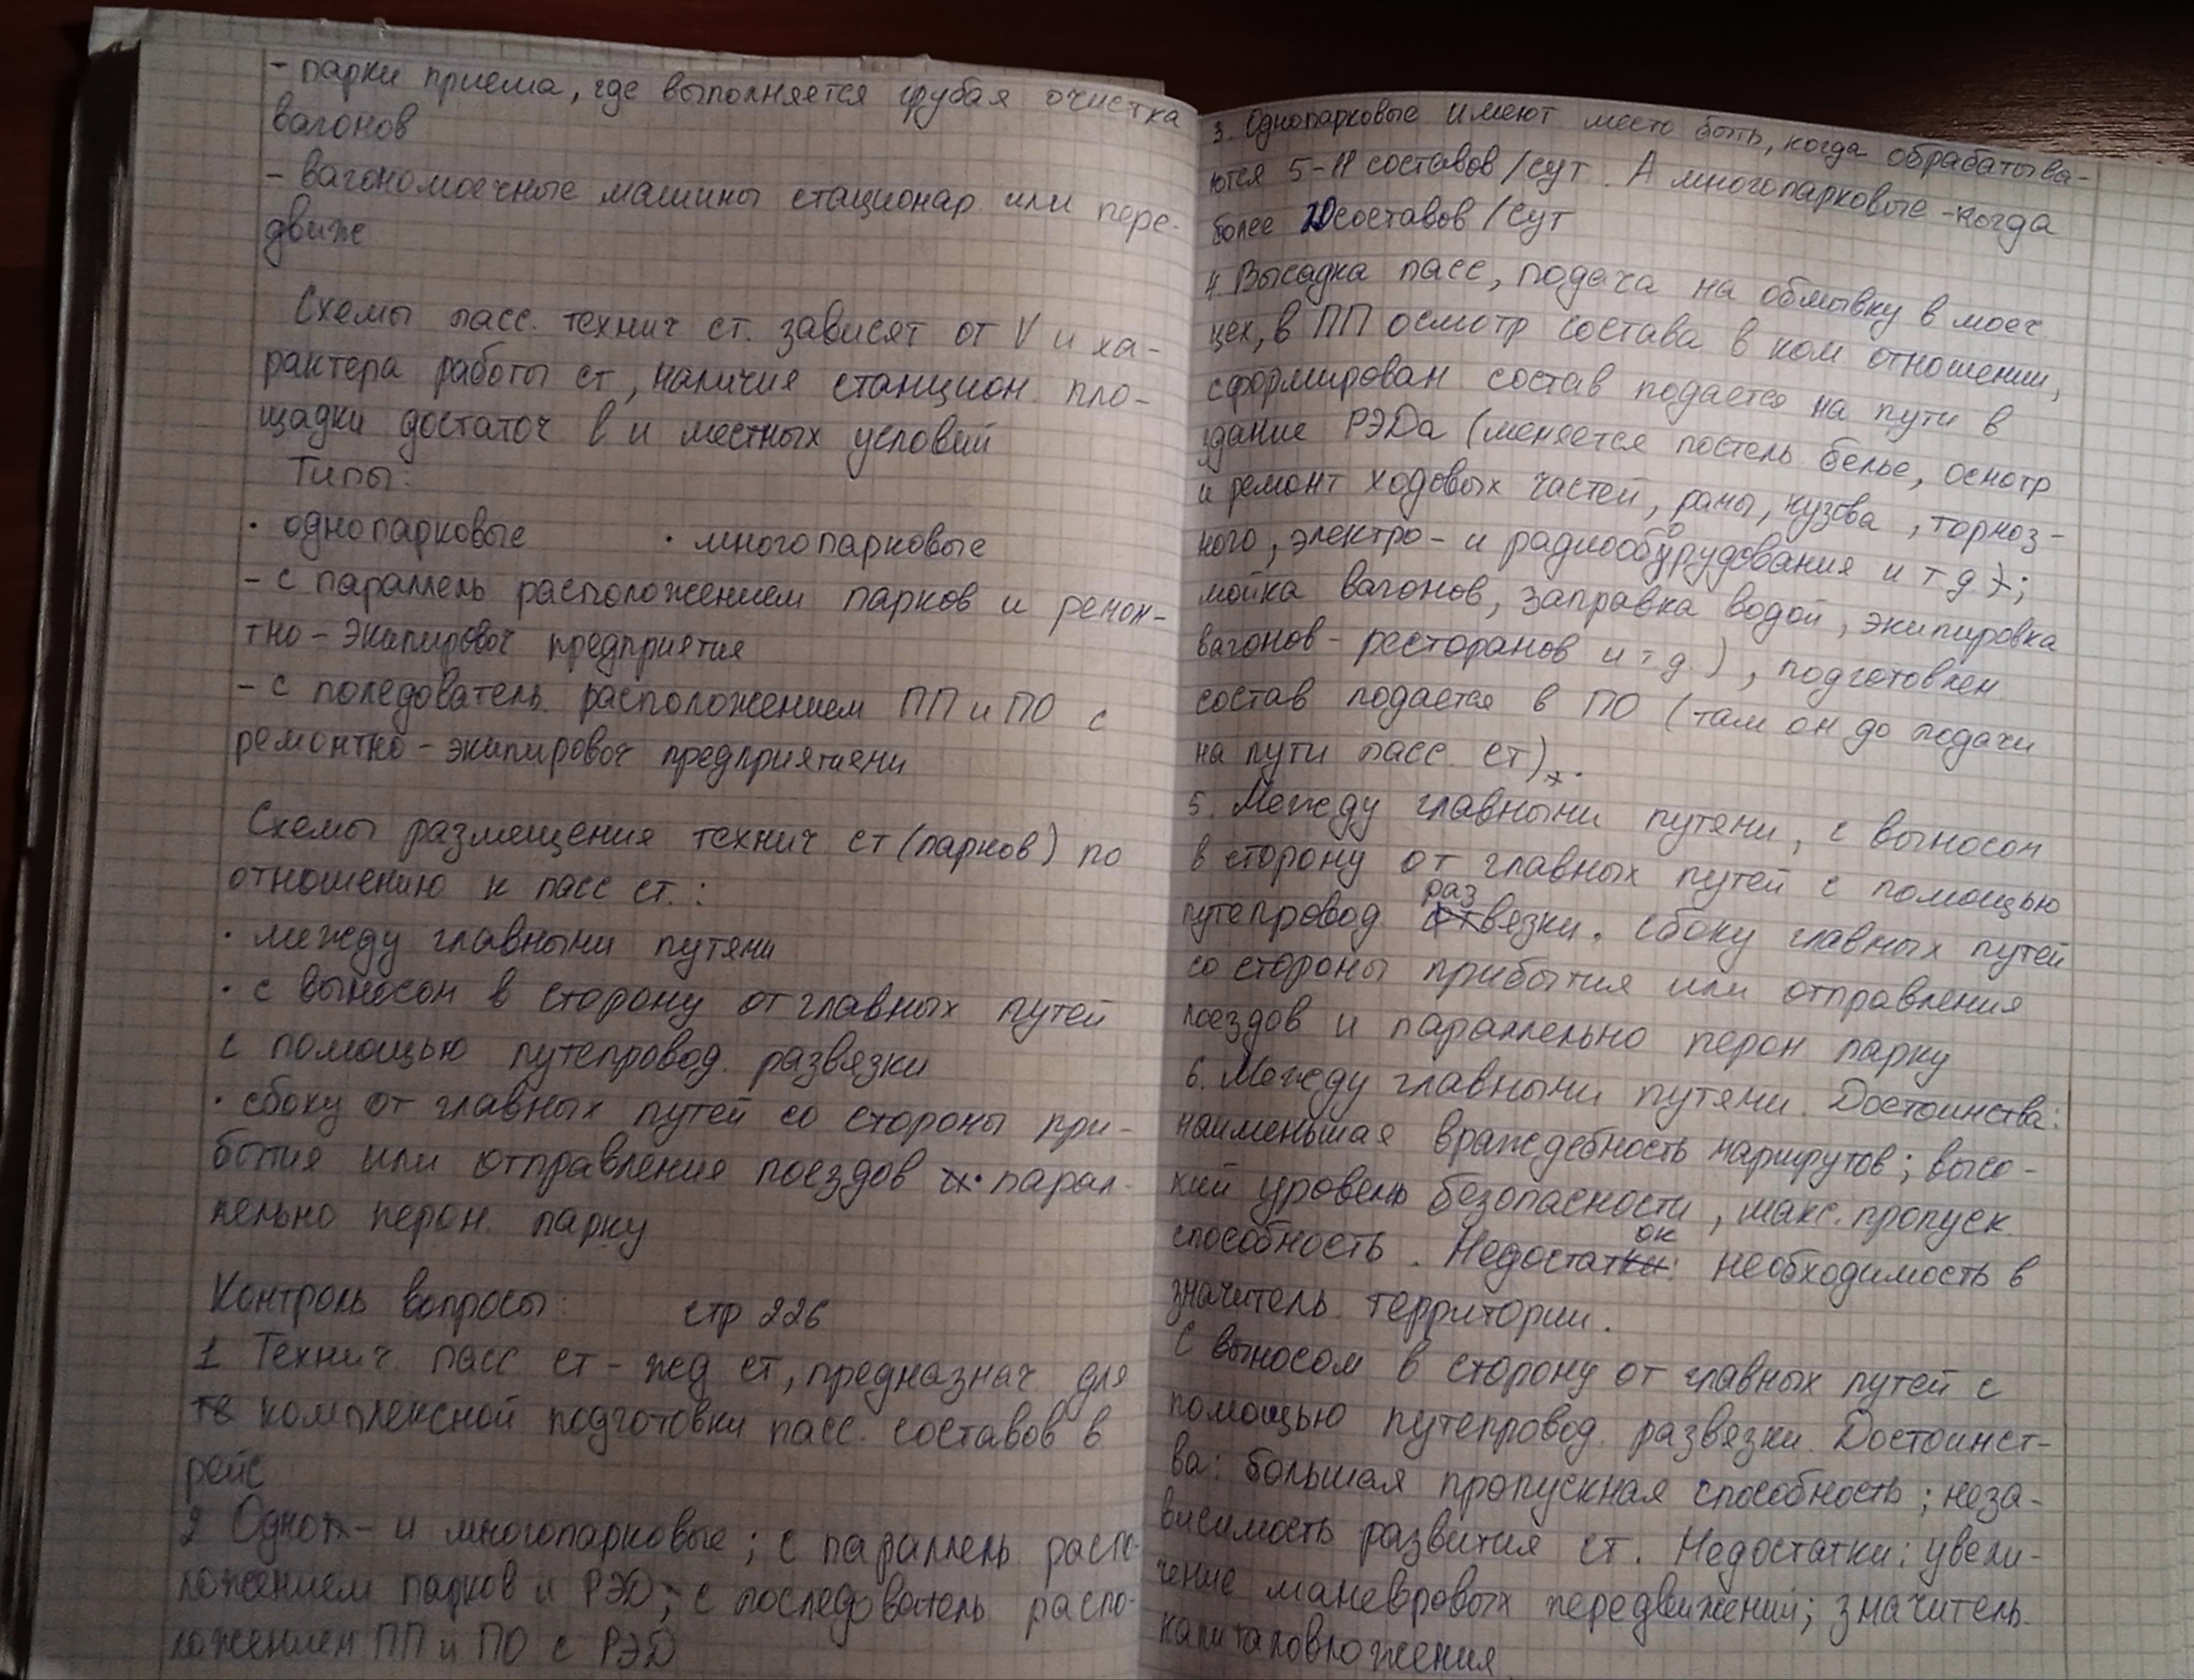 - парки приема, где выполняется грубая очистка
вагонов
- вагономоечные машины стационар. или пере-
движ
Схемы пасс. технич ст. зависят от V и ха-
рактера работы ст, наличия станцион. пло-
щадки достаточ l и местных условий
Типы:
· однопарковые · многопарковые
- с параллель расположением парков и ремон-
тно - экипировоч предприятия
- с поледователь. расположением ПП и ПО с
ремонтно - экипировоч предприятиями
Схемы размещения технич ст (парков) по
отношению к пасс ст. :
· между главными путями
· с выносом в сторону от главных путей
с помощью путепровод. развязки
· сбоку от главных путей со стороны при-
бытия или отправления поездов · парал-
лельно перон. парку
Контроль вопросы: стр 226
1 Технич. пасс ст - жед ст, предназнач. для
комплексной подготовки пасс. составов в
рейс
2 Одно - и многопарковые ; с параллель распо-
ложением парков и РЭД; с последователь распо-
ложением ПП и ПО с РЭД
3. Однопарковые имеют место быть, когда обрабатыва-
ются 5-11 составов /сут. А многопарковые - когда
более 20 составов /сут
4. Высадка пасс, подача на обмывку в моеч.
цех, в ПП осмотр состава в ком отношении,
сформирован состав подается на пути в
здание РЭДа (меняется постель белье, осмотр
и ремонт ходовых частей, рамы, кузова, тормоз-
ного, электро- и радиооборудования и т д );
мойка вагонов, заправка водой, экипировка
вагонов - ресторанов и т д. ), подготовлен
состав подается в ПО (там он до подачи
на пути пасс. ст).
5. Между главными путями, с выносом
в сторону от главных путей с помощью
путепровод развязки. сбоку главных путей
со стороны прибытия или отправления
поездов и параллельно перон парку
6. Между главными путями. Достоинства:
наименьшая враждебность маршрутов; высо-
кий уровень безопасности, макс. пропуск.
способность. Недостаток: необходимость в
значитель. территории.
С выносом в сторону от главных путей с
помощью путепровод. развязки. Достоинст-
ва: большая пропускная способность; неза-
висимость развития ст. Недостатки: увели-
чение маневровых передвижений; значитель.
капиталовложения.